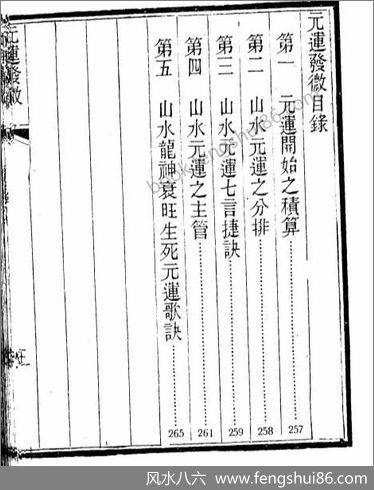 元運發微目錄
第一 元運開始之積算………257
第二 山水元運之分排………258
第三 山水元運七言捷訣………259
第四 山水元運之主管………261
第五 山水龍神衰旺生死元運歌訣………265
元運發微
风水八六 www.fengshui86.com